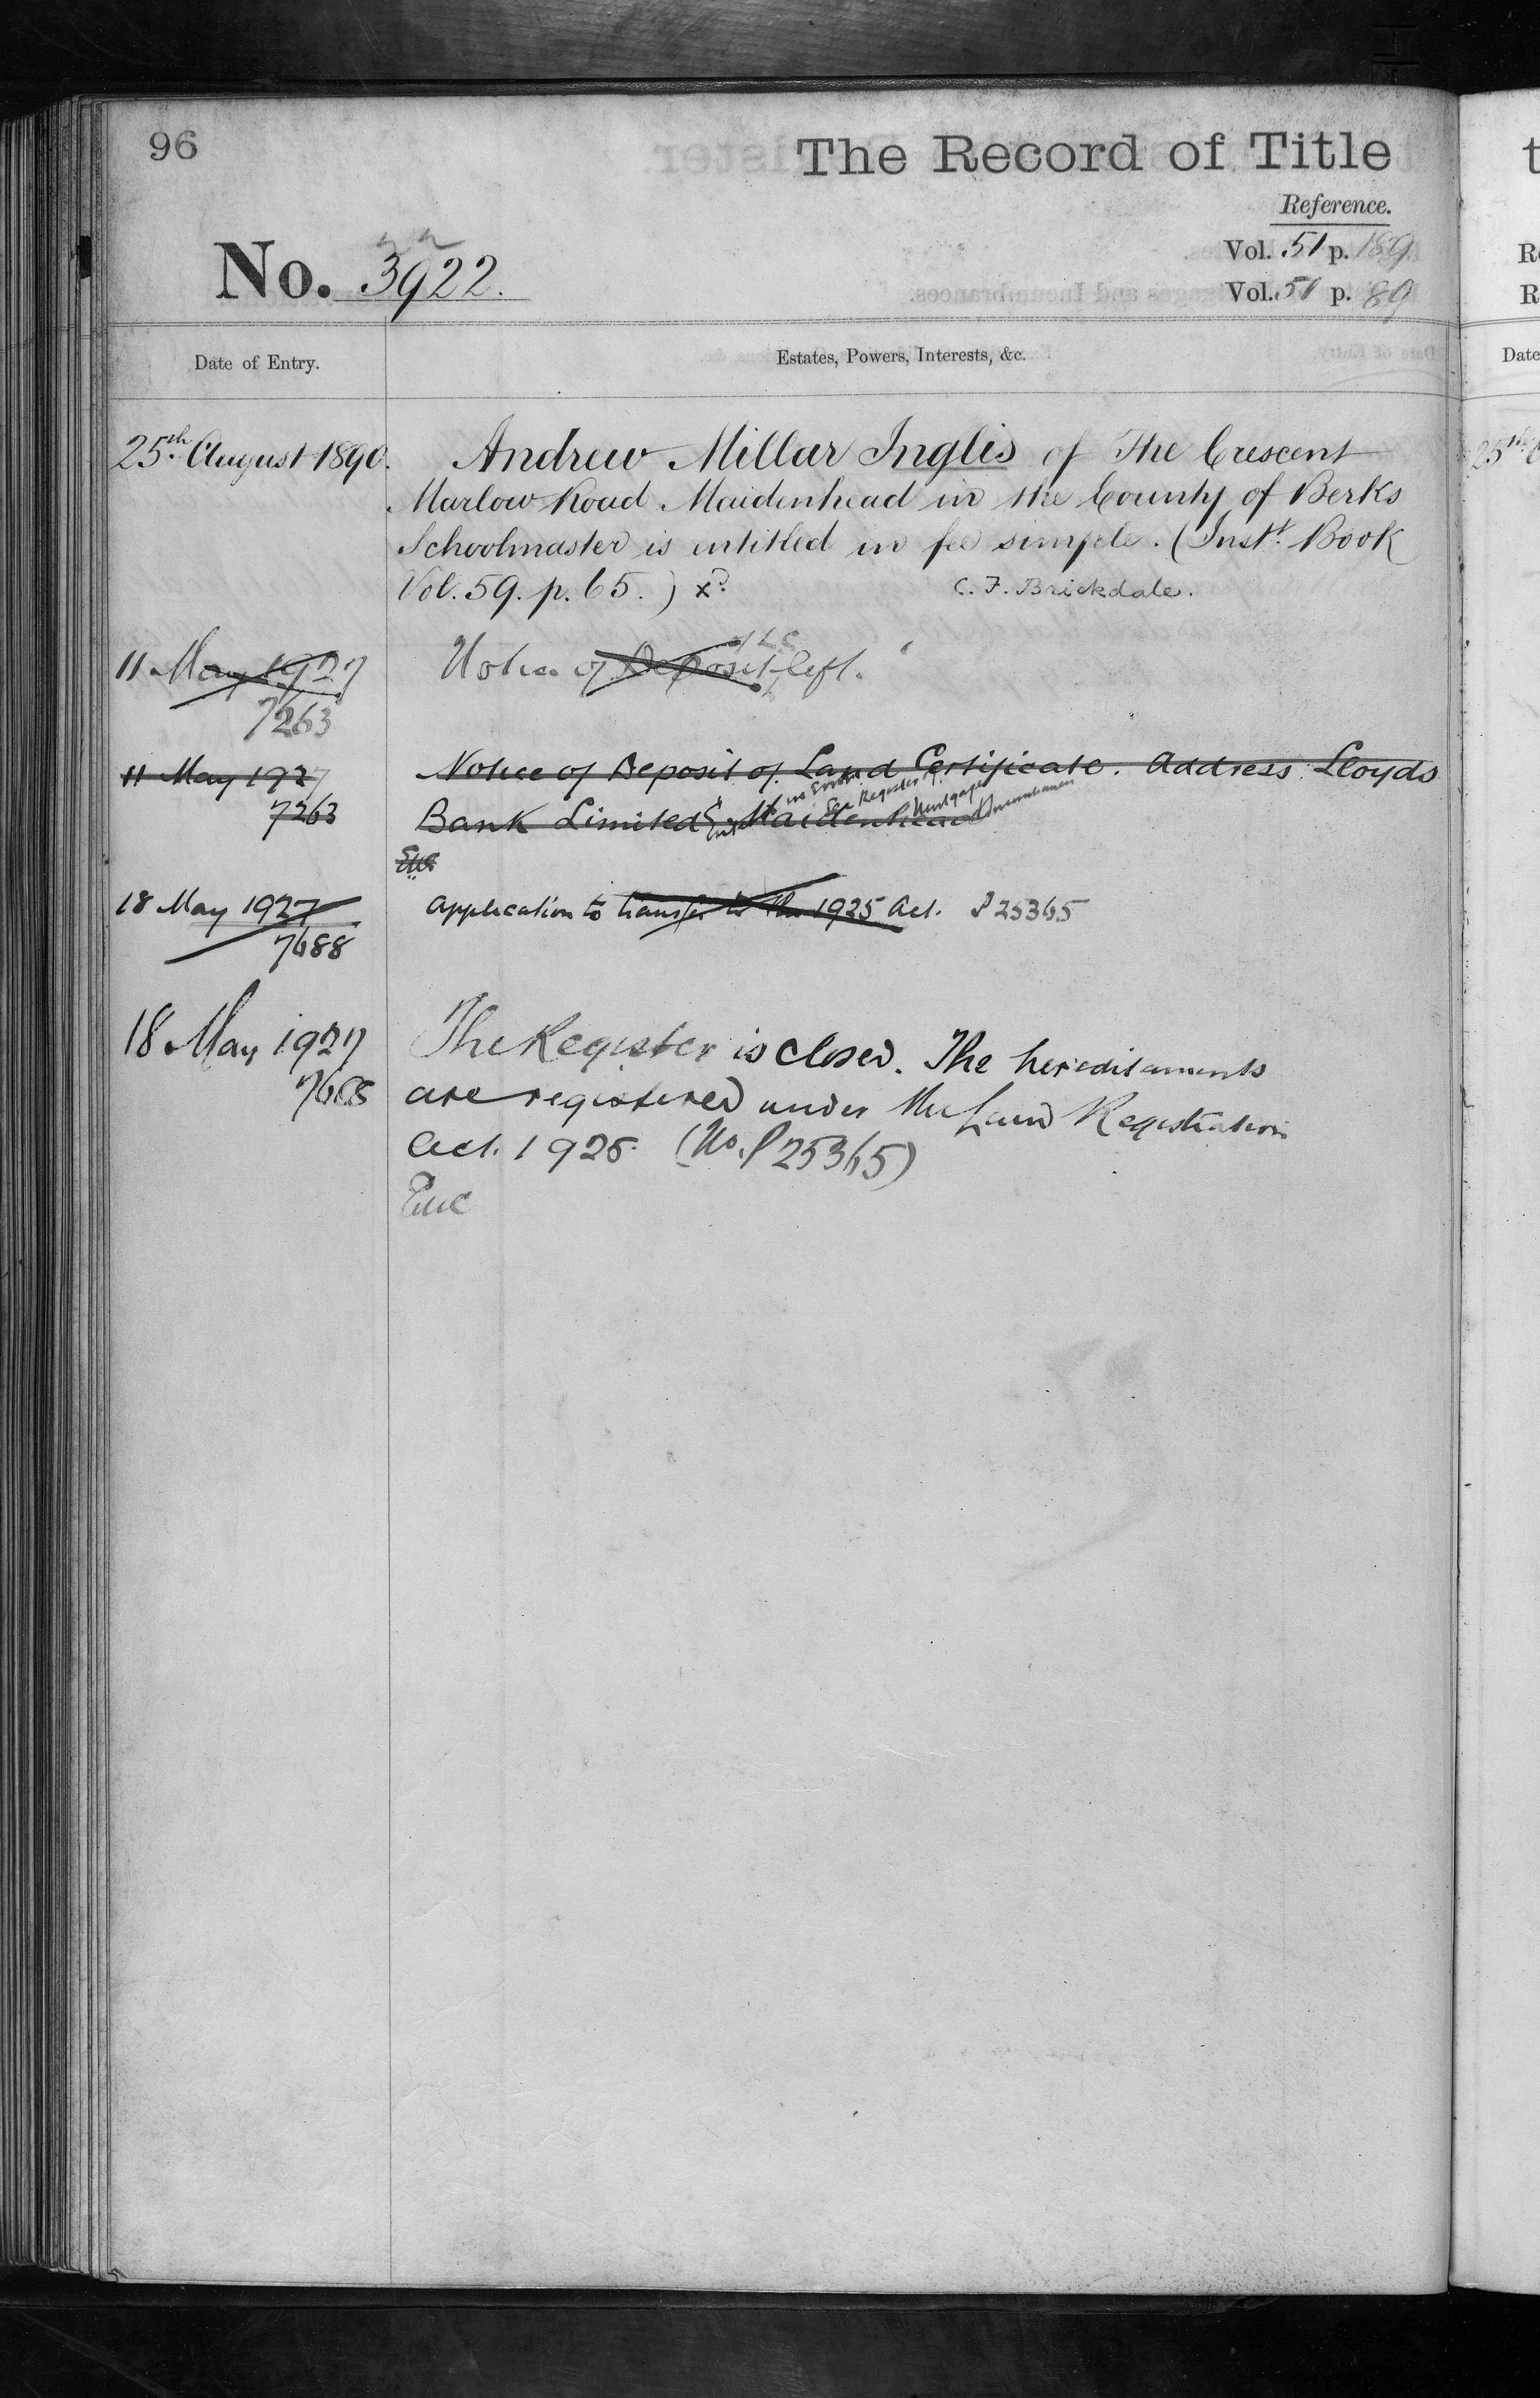 96
The Record of Title
Reference.
No. 3922.
Vol. 51 p. 189
Vol. 51 p. 89
Date of Entry.
Estates, Powers, Interests, &c.
25th August 1890.
Andrew Millar Inglis of The Crescent
Marlow Road Maidenhead in the County of Berks
Schoolmaster is entitled in fee simple. (Inst. Book
Vol. 59. p. 65.)
C. F. Brickdale.
11 May 1927
7263
Notice of Deposit of LC left.
11 May 1927
7263
Notice of Deposit of Land Certificate. Address: Lloyds
Bank Limited Maidenhead
in Error See Register of Mortgages & Incumbrances
18 May 1927
7688
Application to transfer to the 1925 Act. P 25365
18 May 1927
7688
The Register is closed. The hereditaments
are registered under the Land Registration
Act. 1925. (No. P 25365)